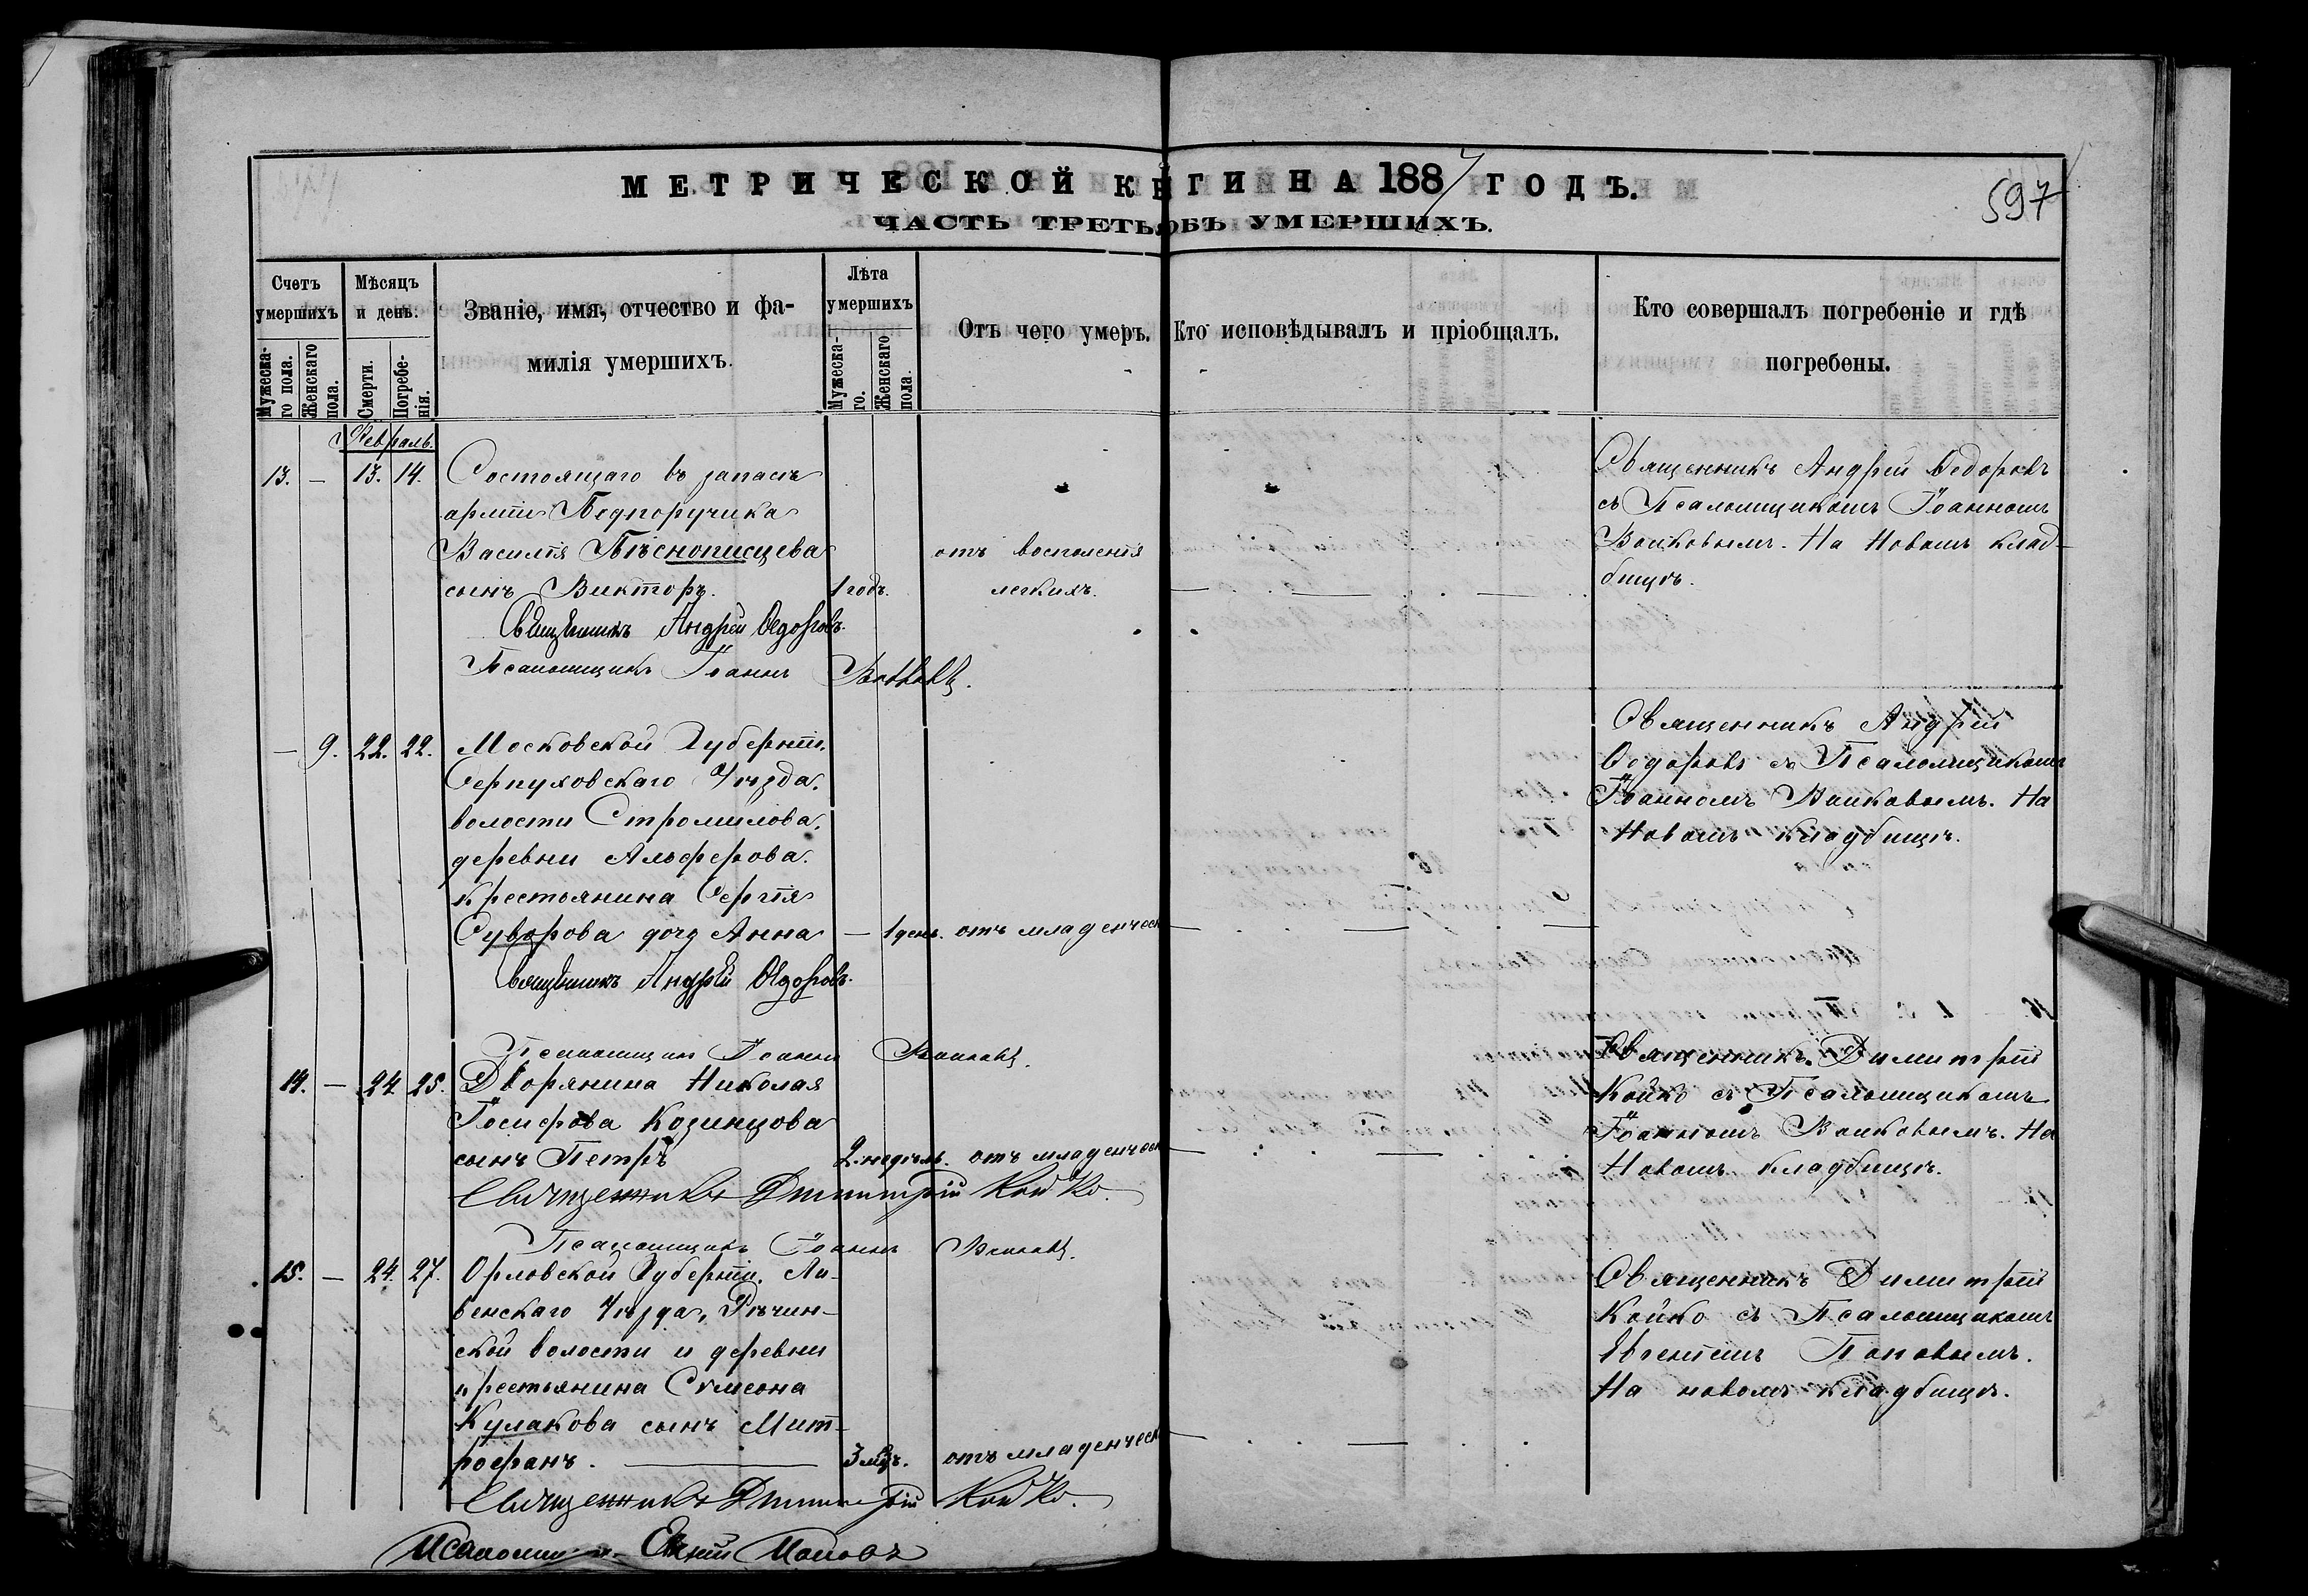 МЕТРИЧЕСКОЙ КНИГИ НА 1887 ГОДЪ.
597
ЧАСТЬ ТРЕТЬЯ ОБЪ УМЕРШИХЪ.
Счетъ умершихъ
Мужеска-го пола.
Женскаго пола.
Мѣсяцъ и день.
Смерти.
Погребе-нія.
Званіе, имя, отчество и фа-
милія умершихъ.
Лѣта умершихъ
Мужеска-го.
Женскаго пола.
Отъ чего умеръ.
Кто исповѣдывалъ и пріобщалъ.
Кто совершалъ погребеніе и гдѣ
погребены.
Февраль.
13. — 13. 14.
Состоящаго въ запасѣ
арміи Подпоручика
Василія Пѣснописцева
сынъ Викторъ.
1 годъ.
отъ воспаленія
легкихъ.
Священникъ Андрей Ѳедоровъ
съ Псаломщикомъ Іоанномъ
Войковымъ. На Новомъ клад-
бищѣ.
Священникъ Андрей Ѳедоровъ.
Псаломщикъ Іоаннъ Войковъ.
— 9. 22. 22.
Московской Губерніи,
Серпуховскаго Уѣзда,
волости Стромилова,
деревни Алферова.
крестьянина Сергія
Суворова дочь Анна
— 1 день. отъ младенческ
Священникъ Андрей
Ѳедоровъ съ Псаломщикомъ
Іоанномъ Войковымъ. На
Новомъ кладбищѣ.
Священникъ Андрей Ѳедоровъ.
Псаломщикъ Іоаннъ Войковъ.
14. — 24. 25.
Дворянина Николая
Іосифова Козинцова
сынъ Петръ
2 недѣль. отъ младенческ
Священникъ Димитрій
Койко съ Псаломщикомъ
Іоанномъ Войковымъ. На
Новомъ кладбищѣ.
Священникъ Димитрій Койко.
Псаломщикъ Іоаннъ Войковъ.
15. — 24. 27.
Орловской Губерніи, Ли-
венскаго Уѣзда, Рѣчин-
ской волости и деревни
крестьянина Сѵмеона
Кулакова сынъ Мит-
рофанъ.
3 мѣс.
отъ младенческ
Священникъ Димитрій
Койко съ Псаломщикомъ
Евгеніемъ Поповымъ.
На новомъ кладбищѣ.
Священникъ Димитрій Койко.
Псаломщикъ Евгеній Поповъ